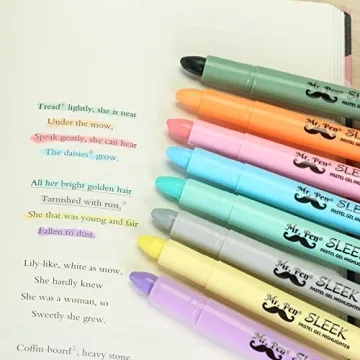 Tread° lightly, she is near
Under the snow,
Speak gently, she can hear
The daisies° grow.
All her bright golden hair
Tarnished with rust,°
She that was young and fair
Fallen to dust.
Lily-like, white as snow,
She hardly knew
She was a woman, so
Sweetly she grew.
Coffin-board°, heavy stone
Mr. Pen® SLEEK
PASTEL GEL HIGHLIGHTER
Mr. Pen® SLEEK
PASTEL GEL HIGHLIGHTER
Mr. Pen® SLEEK
PASTEL GEL HIGHLIGHTER
Mr. Pen® SLEEK
PASTEL GEL HIGHLIGHTER
Mr. Pen® SLEEK
PASTEL GEL HIGHLIGHTER
Mr. Pen® SLEEK
PASTEL GEL HIGHLIGHTER